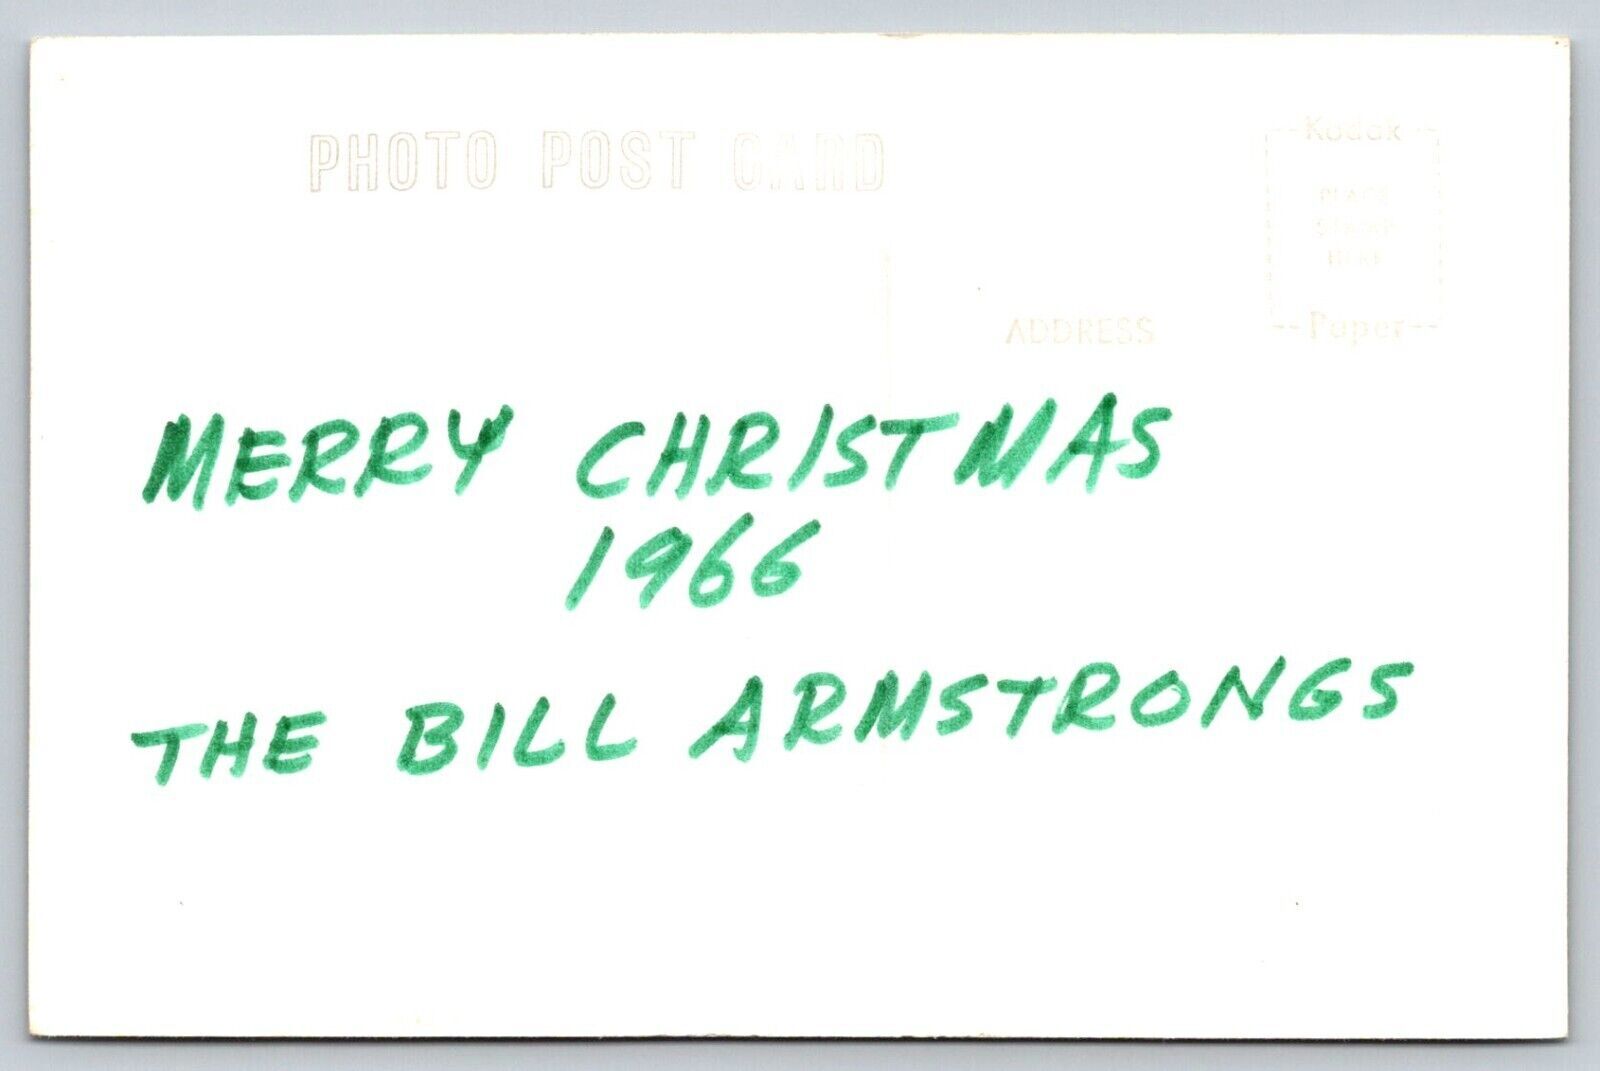 PHOTO POST CARD
Kodak
PLACE
STAMP
HERE
Paper
ADDRESS
MERRY CHRISTMAS
1966
THE BILL ARMSTRONGS